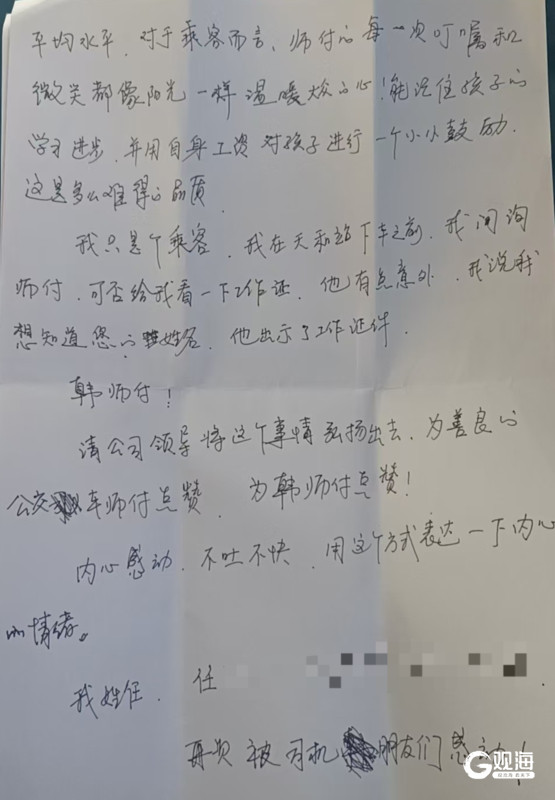 平均水平，对于乘客而言、师付的每一次叮嘱和
微笑都像阳光一样温暖众的心！能记住孩子的
学习进步，并用自身工资对孩子进行一个小小鼓励.
这是多么难得的品质
我只是个乘客，我在天和站下车之前，我问询
师付，可否给我看一下工作证，他有点意外，我说我
想知道您的姓名，他出示了工作证件.
韩师付！
请公司领导将这个事情弘扬出去，为善良的
公交车师付点赞，为韩师付点赞！
内心感动，不吐不快，用这个方式表达一下内心
的情绪。
我姓任，任
再次被司机朋友们感动！
G观海